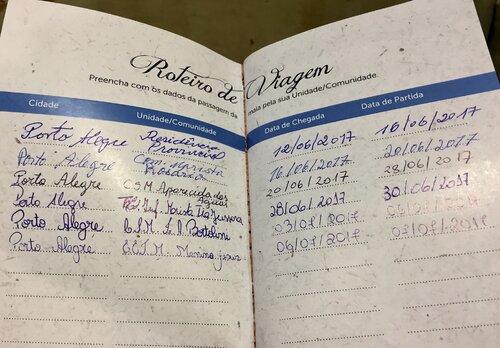 Roteiro de Viagem
Preencha com os dados da passagem da maia pela sua Unidade/Comunidade.
Cidade Unidade/Comunidade Data de Chegada Data de Partida
Porto Alegre Residência Provincial 12/06/2017 16/06/2017
Porto Alegre Com. Marista Rosário 16/06/2017 20/06/2017
Porto Alegre CSM Aparecida das Águas 20/06/2017 28/06/2017
Porto Alegre Marista 28/06/2017 30/06/2017
Porto Alegre 03/07/2017
Porto Alegre Menino Jesus